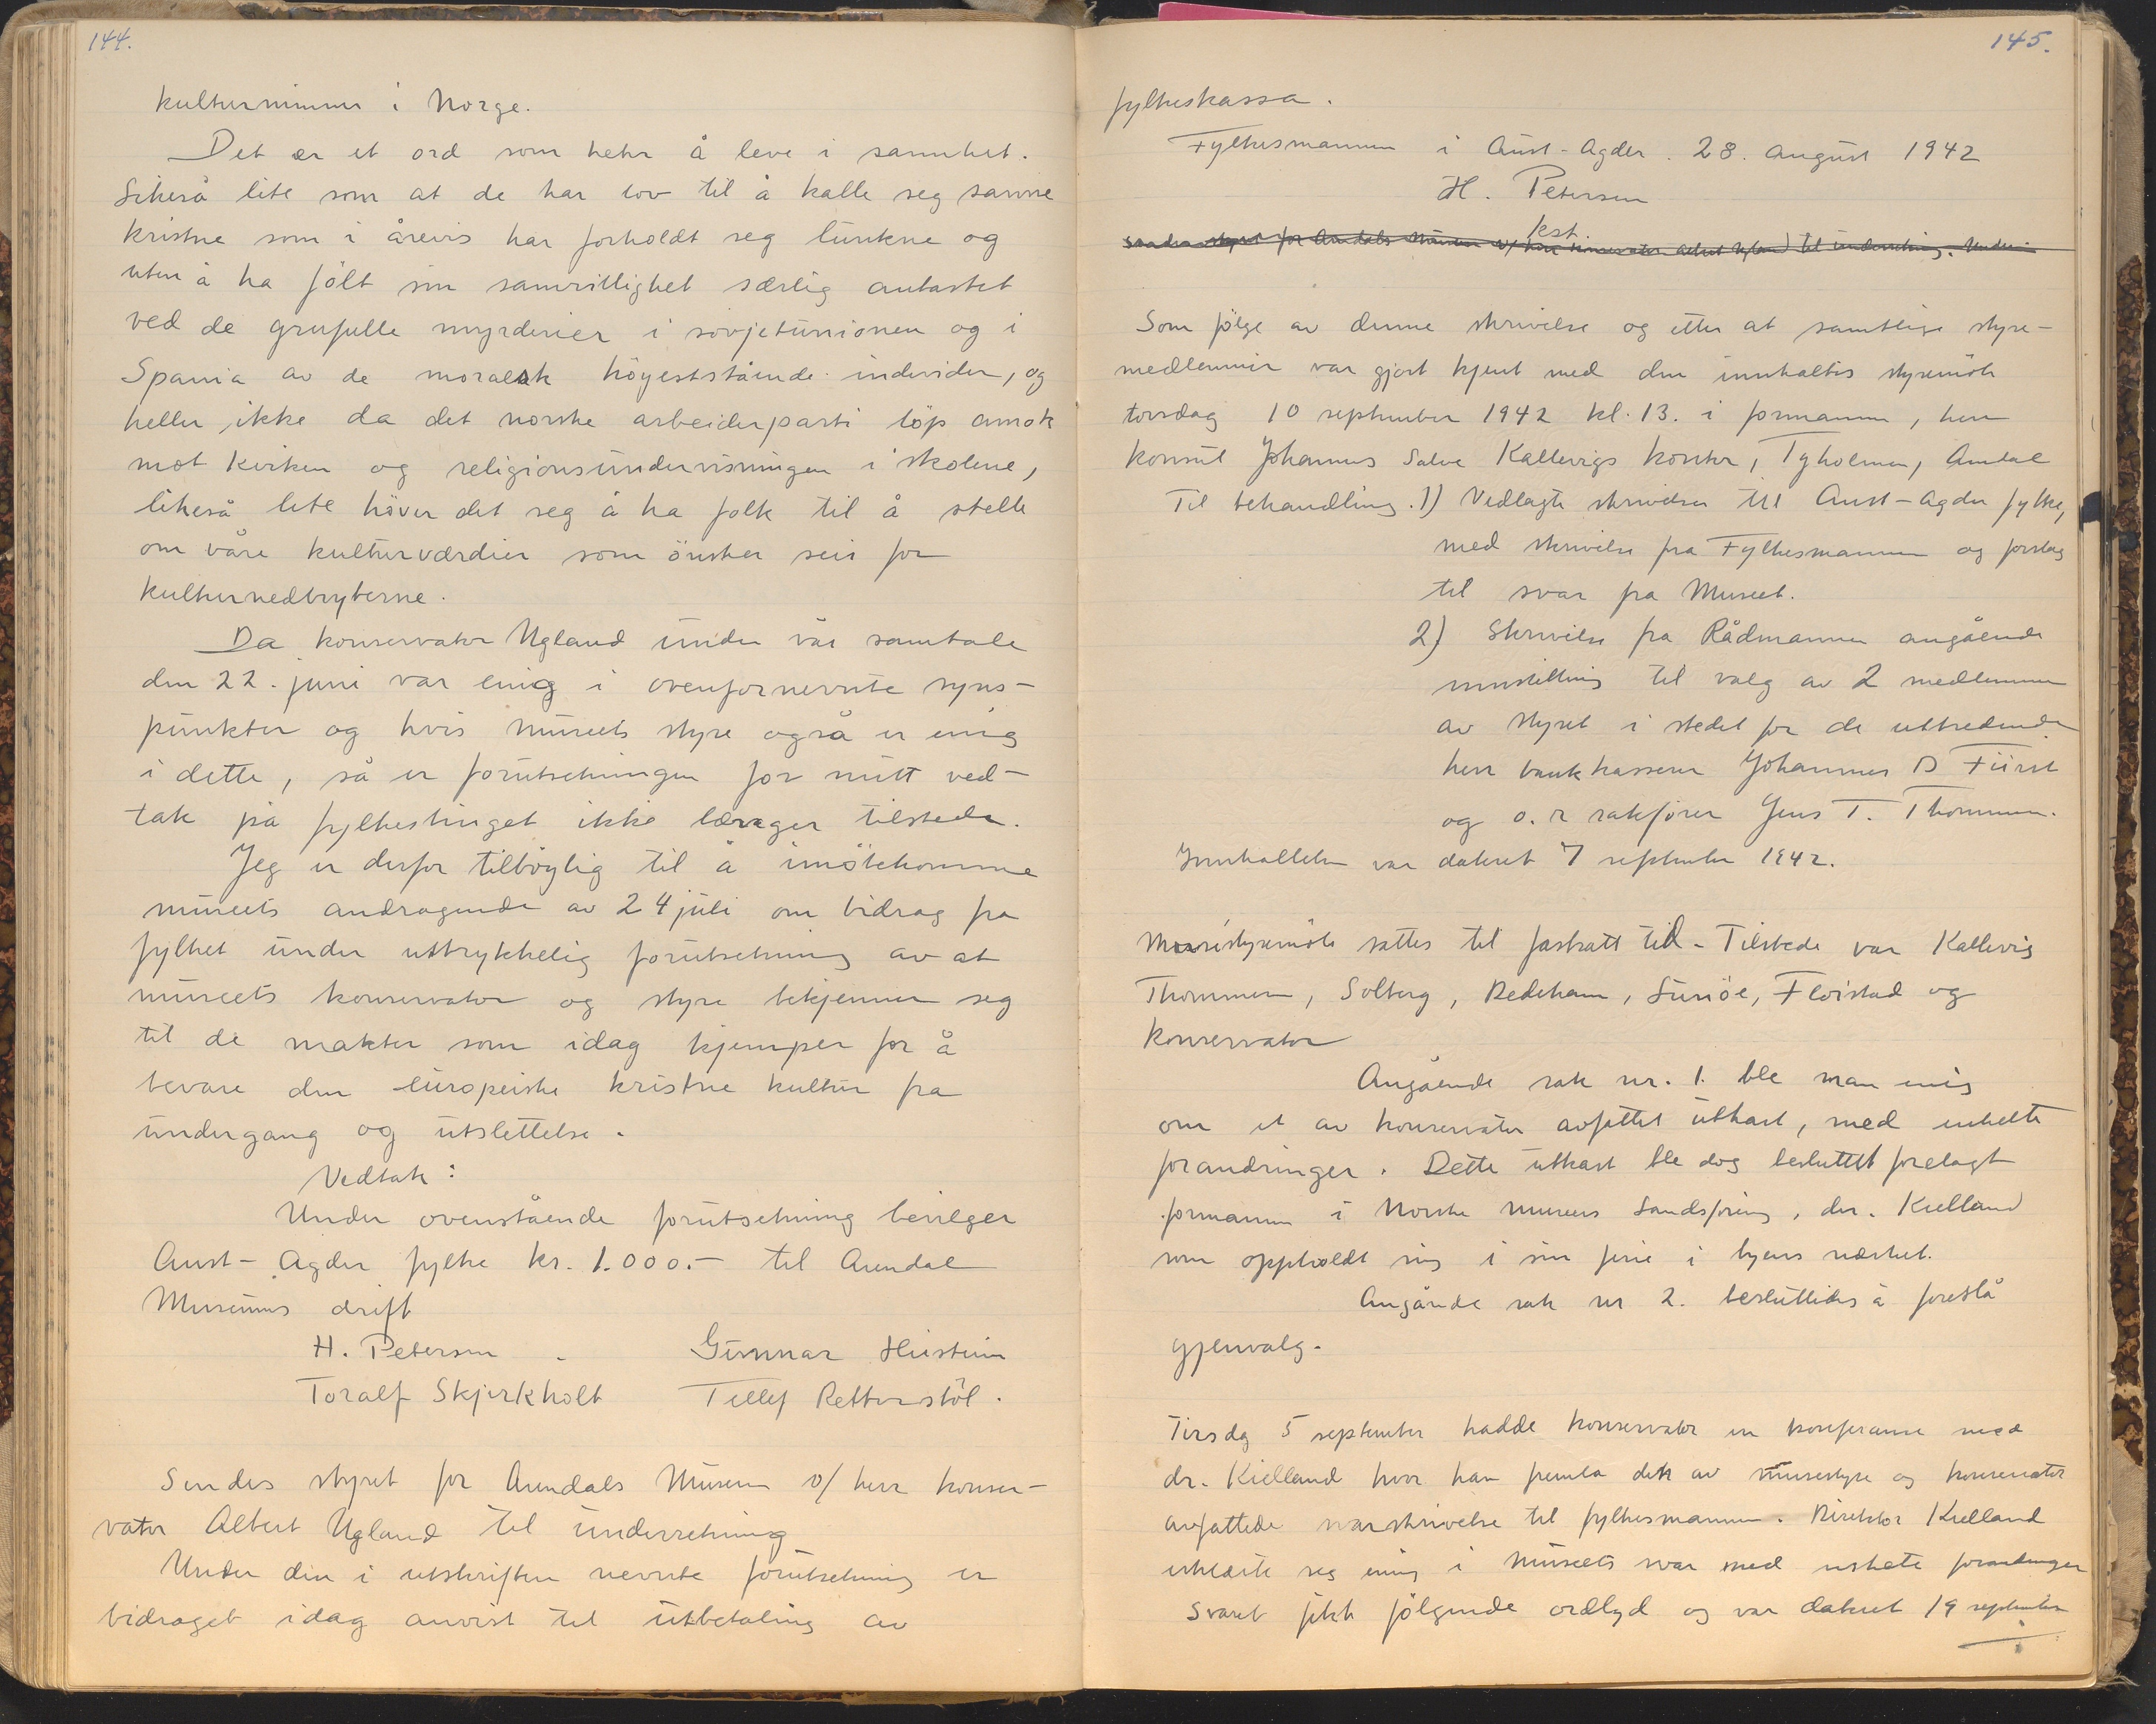 144.
kulturminner i Norge.
Det er et ord som heter å leve i sannhet.
Likeså lite som at de har lov til å kalle seg sanne
kristne som i årevis har forholdt seg lunkne og
uten å ha følt sin samvittighet særlig antastet
ved de grufulle myrderier i sovjetunionen og i
Spania av de moralsk høyeststående individer, og
heller ikke da det norske arbeiderparti løp amok
mot kirken og religionsundervisningen i skolene,
likeså lite høver det seg å ha folk til å stelle
om våre kulturværdier som ønsker seir for
kulturnedbryterne.
Da konservator Ugland under vår samtale
den 22. juni var enig i ovenfornevnte syns-
punkter og hvis museets styre også er enig
i dette, så er forutsetningen for mitt ved-
tak på fylkestinget ikke længer tilstede.
Jeg er derfor tilbøylig til å imøtekomme
museets andragende av 24 juli om bidrag fra
fylket under uttrykkelig forutsetning av at
museets konservator og styre bekjenner seg
til de makter som idag kjemper for å
bevare den europeiske kristne kultur fra
undergang og utslettelse.
Vedtak:
Under ovenstående forutsetning bevilger
Aust-Agder fylke kr. 1.000.- til Arendal
Museums drift
H. Petersen . Gunnar
Toralf Skjerkholt Tellef Retterstöl.
Sendes styret for Arendals Museum v/ herr konser-
vator Albert Ugland til underretning
Under den i utskriften nevnte forutsetning er
bidraget idag anvist til utbetaling av
145.
fylkeskassa.
Fylkesmannen i Aust-Agder. 28. august 1942
H. Petersen
kst.
Sendes styret for Arendals Museum v/ herr konservator Albert Ugland til underretning. Under
Som følge av denne skrivelse og etter at samtlige styre-
medlemmer var gjort kjent med den innkaltes styremøte
torsdag 10 september 1942 kl. 13. i formannen, herr
konsul Johannes Salve Kallevigs kontor, Tyholmen, Arendal
Til behandling. 1) Vedlagte skrivelser til Aust-Agder fylke,
med skrivelse fra Fylkesmannen og forslag
til svar fra Museet.
2) Skrivelse fra Rådmannen angående
innstilling til valg av 2 medlemmer
av styret i stedet for de uttredende
herr bankkasserer Johannes D Fürst
og o.r sakfører Jens T. Thommesen.
Innkallelsen var datert 7 september 1942.
Muséistyremøte sattes til fastsatt tid - Tilstede var Kallevig
Thommesen, Solberg, Dedekam, Fløistad og
konservator
Angående sak nr. 1. ble man enig
om et av konservator avfattet utkast, med enkelte
forandringer. Dette utkast ble dog besluttet forelagt
formannen i Norske museers Landsforening, dir. Kielland
som oppholdt sig i sin ferie i byens nærhet.
Angånde sak nr 2. besluttedes å foreslå
gjenvalg.
Tirsdag 5 september hadde konservator en konferanse med
dr. Kielland hvor han fremla det av museistyre og konservator
avfattede svarskrivelse til fylkesmannen. Direktør Kielland
erklærte seg enig i Museets svar med enkelte forandringer
Svaret fikk følgende ordlyd og var datert 19 september